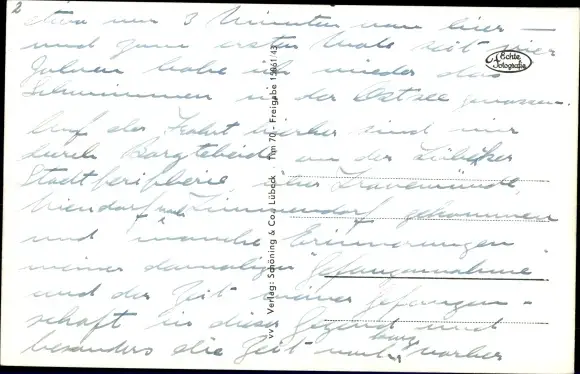 2
etwa nur 3 Minuten von hier —
und zum ersten Male seit vier
Jahren habe ich wieder das
Schwimmen in der Ostsee genossen.
Auf der Fahrt hierher sind wir
durch Bargteheide, an der Lübecker
Stadtperipherie, über Travemünde,
Niendorf nach Timmendorf gekommen
und manche Erinnerungen
meiner damaligen "Gefangennahme"
und der Zeit meiner Gefangen-
schaft in dieser Gegend und
besonders die Zeit kurz vorher
Echte
Fotografie
vv Verlag: Schöning & Co., Lübeck Tim 70 - Freigabe 15061/43